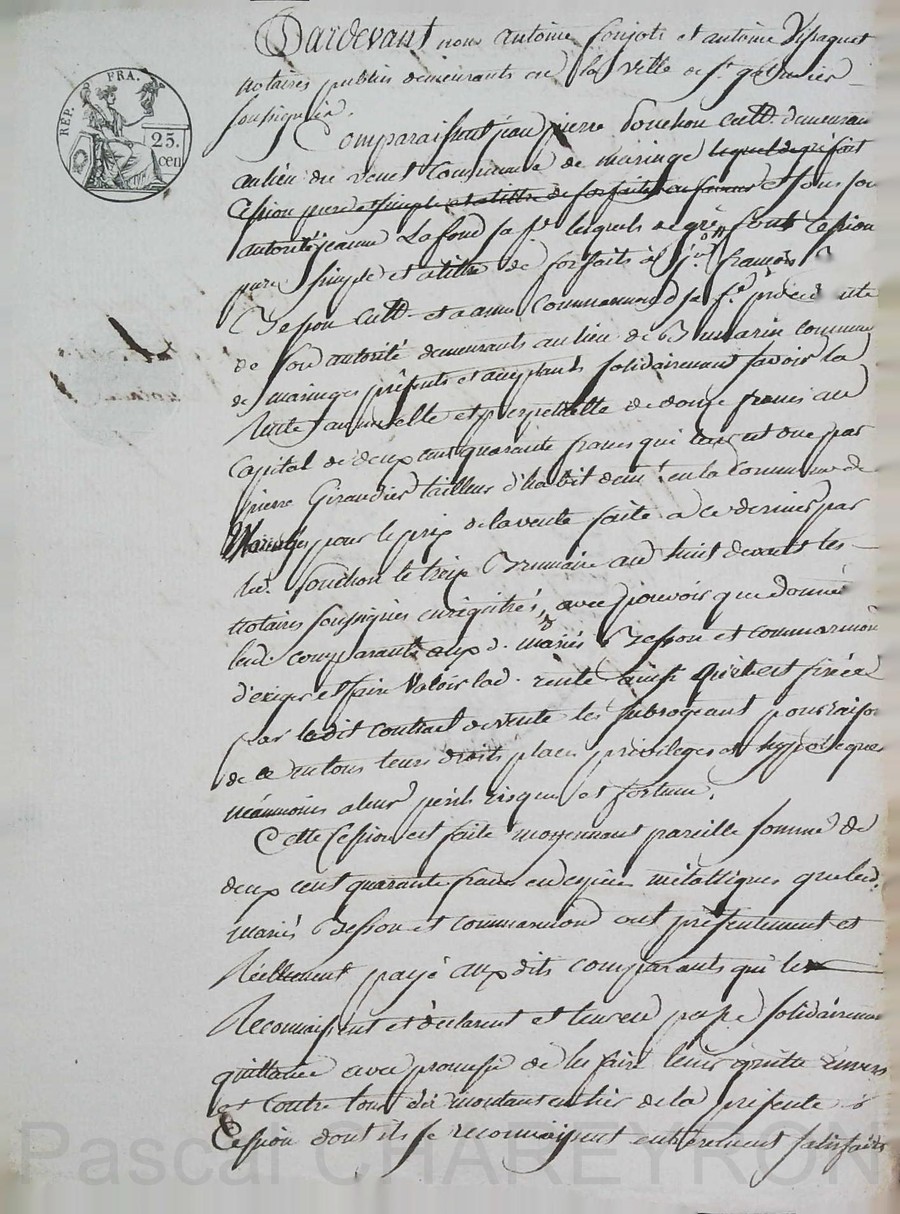 RÉP. FRA.
25.
cen
Pardevant nous antoine et antoine
notaires publics demeurants en la ville de st galmier
soussignés.
Comparaissent jean pierre Souchon cult. demeurant
au lieu du venet Commune de maringe lequel de gré fait
Cession pure et simple et a tittre de forfaits en faveur et sous son
autorité jeanne Lafond sa fe lesquels de gré font Cession
pure simple et a tittre de forfaits à jn francois
Besson cult. et a anne Commarmond sa fe procédente
de son autorité demeurants au lieu de commune
de maringes présents et acceptants solidairement savoir la
Rente annuelle et perpetuelle de douze francs au
Capital de deux cent quarante francs qui leur est due par
pierre Giraudier tailleur d'habit demt. en la Commune de
Maringes pour le prix de la vente faite a ce dernier par
led. Souchon le treize Brumaire an huit devant les
notaires soussignés enrégistré, avec pouvoir que donne
led. comparants aux d. mariés Besson et commarmond
d'exiger et faire Valoir lad. rente ainsi qu'elle est fixée
par ledit contract de vente les subrogeant pour raison
de ce en tous leurs droits places privileges et hypoteques
néanmoins a leur péril risque et fortune.
Cette Cession est faite moyennant pareille somme de
deux cent quarante francs en espèces métalliques que led.
mariés Besson et commarmond ont présentement et
Réellement payé auxdits comparants qui les
Reconnaissent et déclarent et leur en passe solidairement
quittance avec promesse de les faire tenir quitte envers
et contre tous du montant entier de la présente
Cession dont ils se reconnaissent entièrement satisfaits
Pascal CHAREYRON